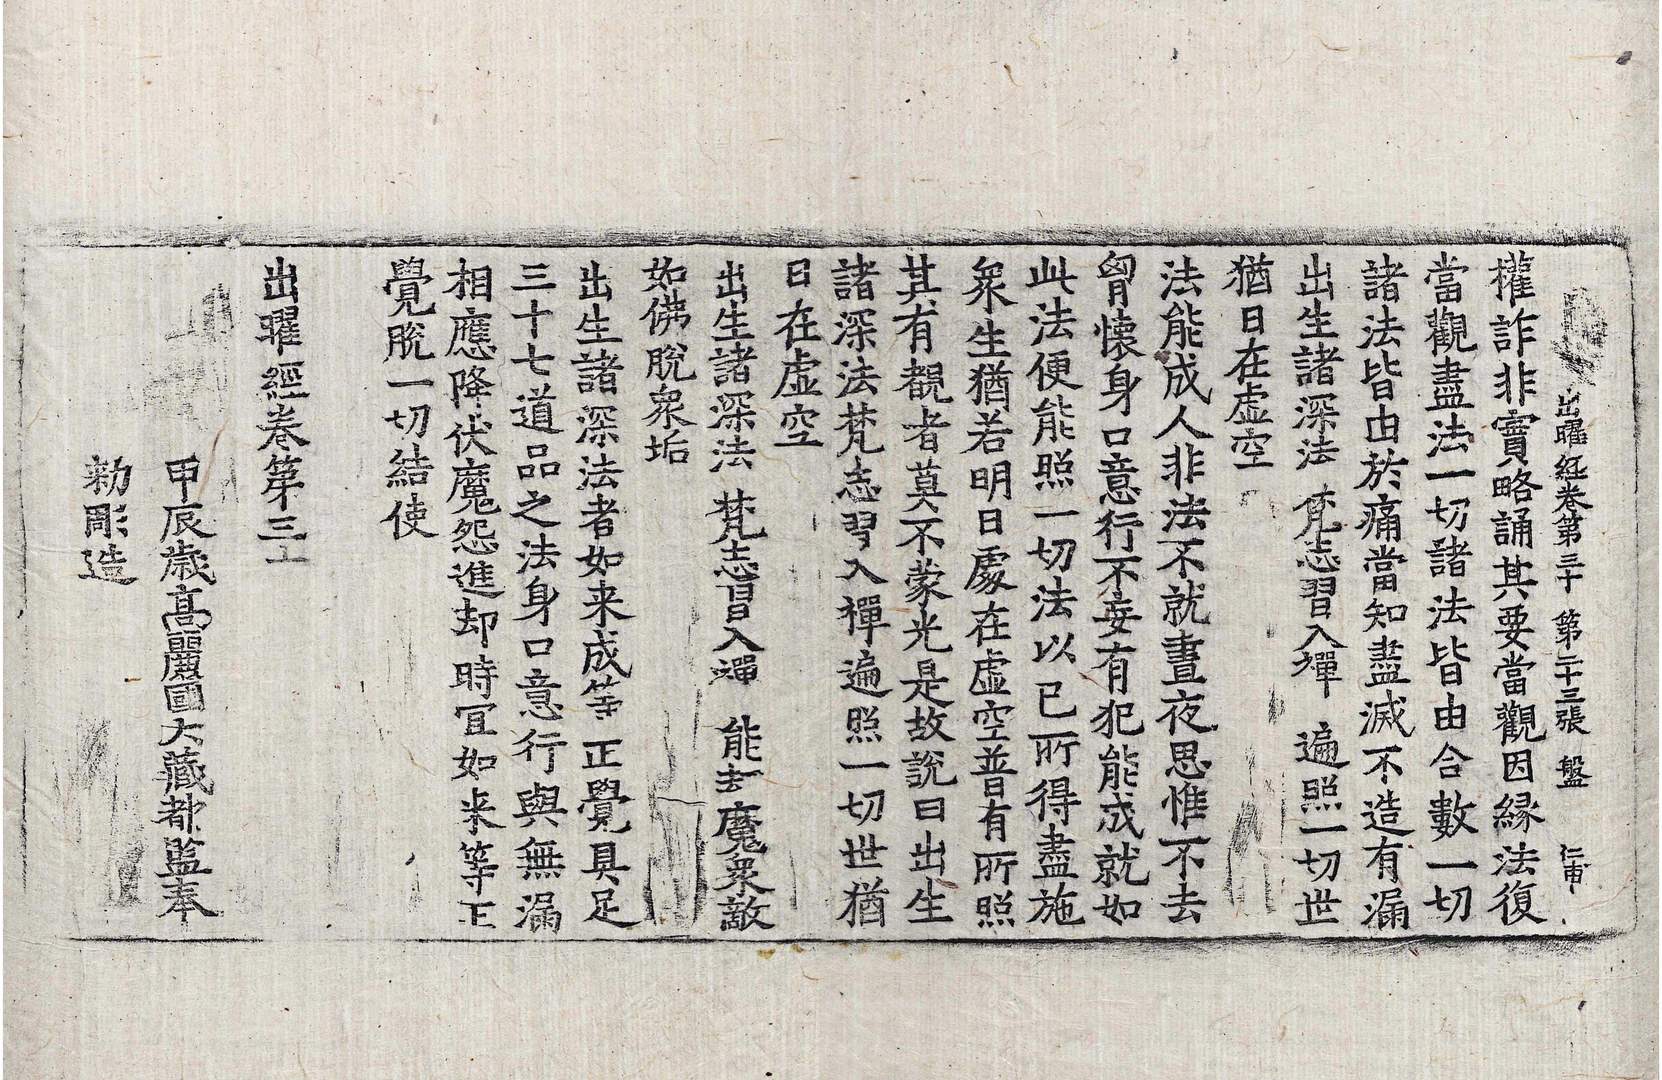 出曜經卷第三十 第二十三張 盤 仁甫
權詐非實略誦其要當觀因縁法復
當觀盡法一切諸法皆由合數一切
諸法皆由於痛當知盡滅不造有漏
出生諸深法 梵志習入禪 遍照一切世
猶日在虛空
法能成人非法不就晝夜思惟不去
胷懷身口意行不妄有犯能成就如
此法便能照一切法以已所得盡施
衆生猶若明日處在虛空普有所照
其有覩者莫不蒙光是故說曰出生
諸深法梵志習入禪遍照一切世猶
日在虛空
出生諸深法 梵志習入禪 能去魔衆敵
如佛脫衆垢
出生諸深法者如来成等正覺具足
三十七道品之法身口意行與無漏
相應降伏魔怨進却時冝如来等正
覺脫一切結使
出曜經卷第三十
甲辰歳高麗國大藏都監奉
勑彫造